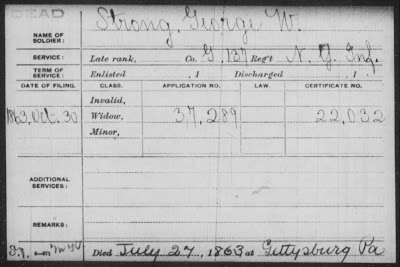 DEAD
NAME OF SOLDIER: Strong, George W.
SERVICE: Late rank, Co. G, 137 Reg't N. Y. Inf.
TERM OF SERVICE: Enlisted , 1 Discharged , 1
DATE OF FILING. CLASS. APPLICATION NO. LAW. CERTIFICATE NO.
Invalid,
1863, Oct. 30 Widow, 37,289 22,032
Minor,
ADDITIONAL SERVICES:
REMARKS:
Died July 27, 1863 at Gettysburg Pa